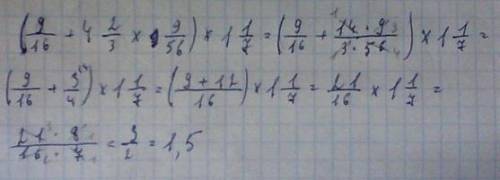 (9/16 + 4 2/3 × 9/56) × 1 1/7 = (9/16 + 14·9/3·56) × 1 1/7 =
(9/16 + 3/4) × 1 1/7 = (9+12/16) × 1 1/7 = 21/16 × 1 1/7 =
21·8/16·7 = 3/2 = 1,5